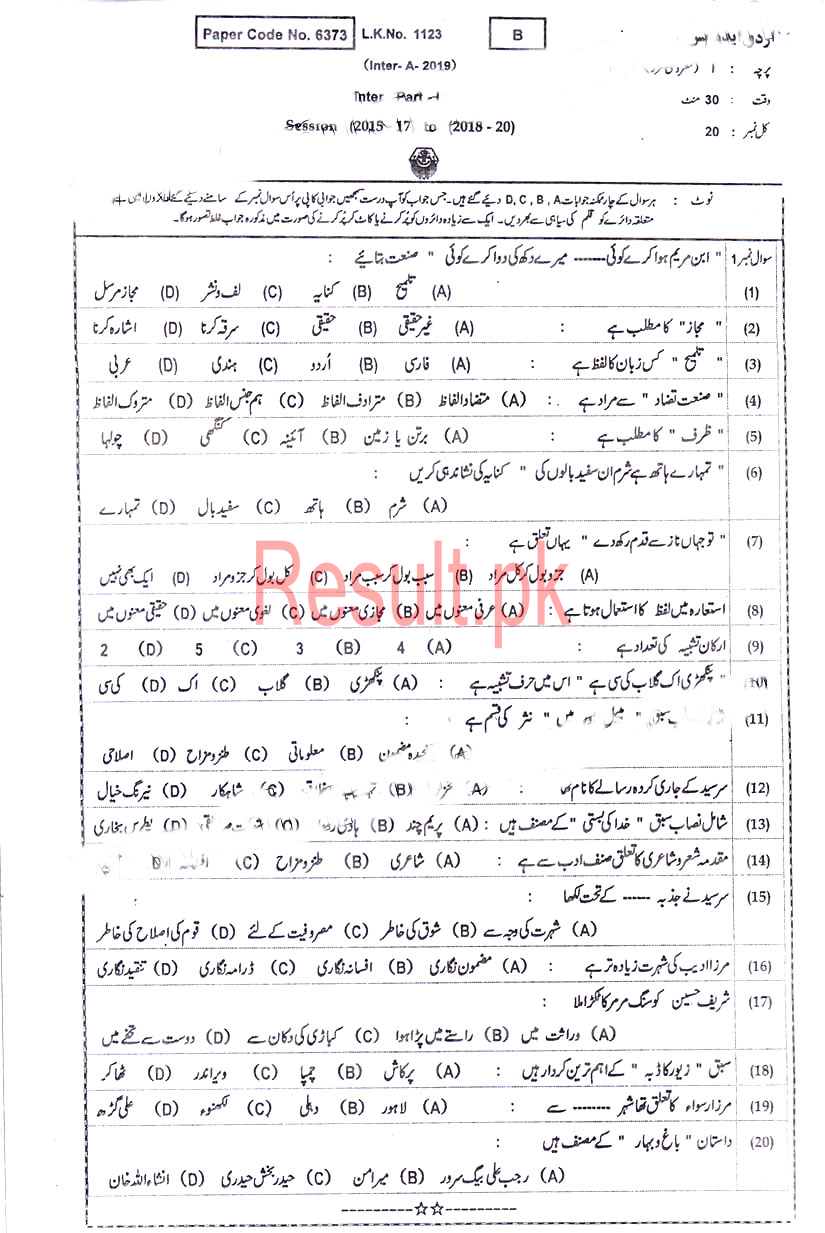 Paper Code No. 6373 L.K.No. 1123 B
(Inter- A- 2019)
پرچہ : I
Inter Part -I
وقت : 30 منٹ
Session (2015 - 17 to (2018 - 20)
کل نمبر : 20
نوٹ : ہر سوال کے چار ممکنہ جوابات D, C, B, A دیئے گئے ہیں۔ جس جواب کو آپ درست سمجھیں جوابی کاپی پر اُس سوال نمبر کے سامنے دیئے گئے
متعلقہ دائرے کو قلم کی سیاہی سے بھر دیں۔ ایک سے زیادہ دائروں کو پُر کرنے یا کاٹ کر پُر کرنے کی صورت میں مذکورہ جواب غلط تصور ہوگا۔
سوال نمبر 1 " ابن مریم ہوا کرے کوئی ------ میرے دکھ کی دوا کرے کوئی " صنعت بتائیے :
(1) (A) تلمیح (B) کنایہ (C) لف و نشر (D) مجاز مرسل
(2) " مجاز" کا مطلب ہے : (A) غیر حقیقی (B) حقیقی (C) سرقہ کرنا (D) اشارہ کرنا
(3) " تلمیح " کس زبان کا لفظ ہے : (A) فارسی (B) اُردو (C) ہندی (D) عربی
(4) " صنعت تضاد " سے مراد ہے : (A) متضاد الفاظ (B) مترادف الفاظ (C) ہم جنس الفاظ (D) متروک الفاظ
(5) " ظرف " کا مطلب ہے : (A) برتن یا زمین (B) آئینہ (C) کنگھی (D) چولہا
(6) " تمہارے ہاتھ ہے شرم ان سفید بالوں کی " کنایہ کی نشاندہی کریں :
(A) شرم (B) ہاتھ (C) سفید بال (D) تمہارے
(7) " تو جہاں ناز سے قدم رکھ دے " یہاں تعلق ہے :
(A) جزو بول کر کل مراد (B) سبب بول کر مسبب مراد (C) کل بول کر جزو مراد (D) ایک بھی نہیں
(8) استعارہ میں لفظ کا استعمال ہوتا ہے : (A) عرفی معنوں میں (B) مجازی معنوں میں (C) لغوی معنوں میں (D) حقیقی معنوں میں
(9) ارکان تشبیہ کی تعداد ہے : (A) 4 (B) 3 (C) 5 (D) 2
(10) " پنکھڑی اک گلاب کی سی ہے " اس میں حرف تشبیہ ہے : (A) پنکھڑی (B) گلاب (C) اک (D) کی سی
(11) سبق " " نثر کی قسم ہے :
(A) مضمون (B) معلوماتی (C) طنز و مزاح (D) اصلاحی
(12) سرسید کے جاری کردہ رسالے کا نام تھا : (A) (B) (C) شاہکار (D) نیرنگ خیال
(13) شامل نصاب سبق " خدا کی بستی " کے مصنف ہیں : (A) پریم چند (B) (C) (D) پطرس بخاری
(14) مقدمہ شعر و شاعری کا تعلق صنف ادب سے ہے : (A) شاعری (B) طنز و مزاح (C)
(15) سرسید نے جذبہ ------ کے تحت لکھا :
(A) شہرت کی وجہ سے (B) شوق کی خاطر (C) مصروفیت کے لئے (D) قوم کی اصلاح کی خاطر
(16) مرزا ادیب کی شہرت زیادہ تر ہے : (A) مضمون نگاری (B) افسانہ نگاری (C) ڈرامہ نگاری (D) تنقید نگاری
(17) شریف حسین کو سنگ مرمر کا ٹکڑا ملا :
(A) وراثت میں (B) راستے میں پڑا ہوا (C) کباڑی کی دکان سے (D) دوست سے تحفے میں
(18) سبق " زیور کا ڈبہ " کے اہم ترین کردار ہیں : (A) پرکاش (B) چمپا (C) ویراندر (D) ٹھاکر
(19) مرزا رسواء کا تعلق تھا شہر -------- سے : (A) لاہور (B) دہلی (C) لکھنوء (D) علی گڑھ
(20) داستان " باغ و بہار " کے مصنف ہیں :
(A) رجب علی بیگ سرور (B) میر امن (C) حیدر بخش حیدری (D) انشاء اللہ خان
---------☆☆---------
Result.pk